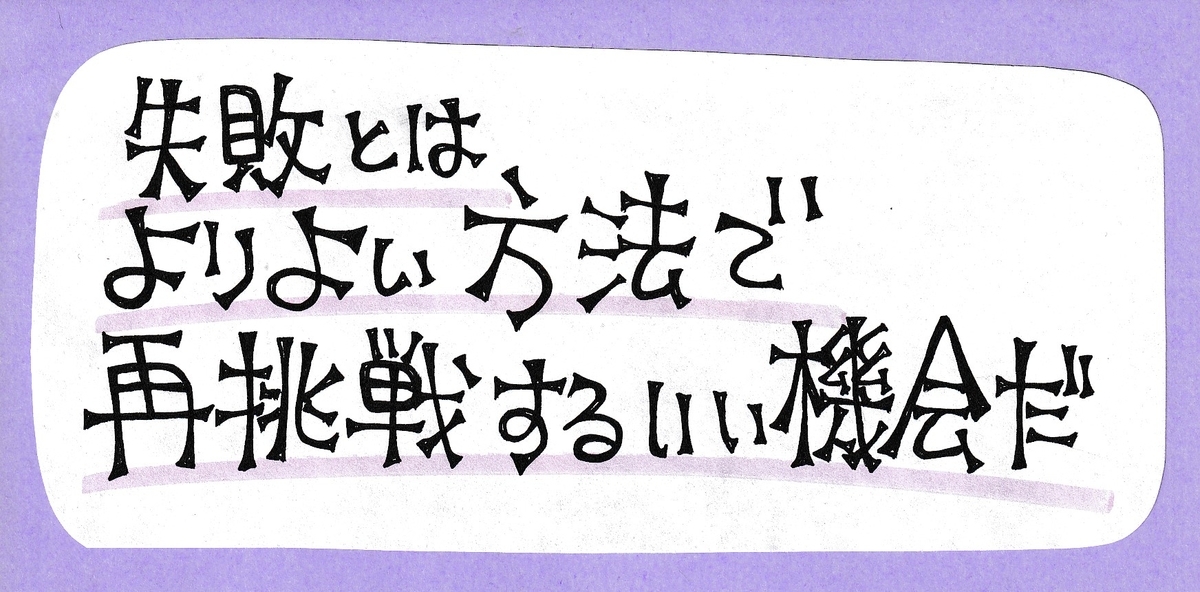 失敗とは
よりよい方法で
再挑戦するいい機会だ